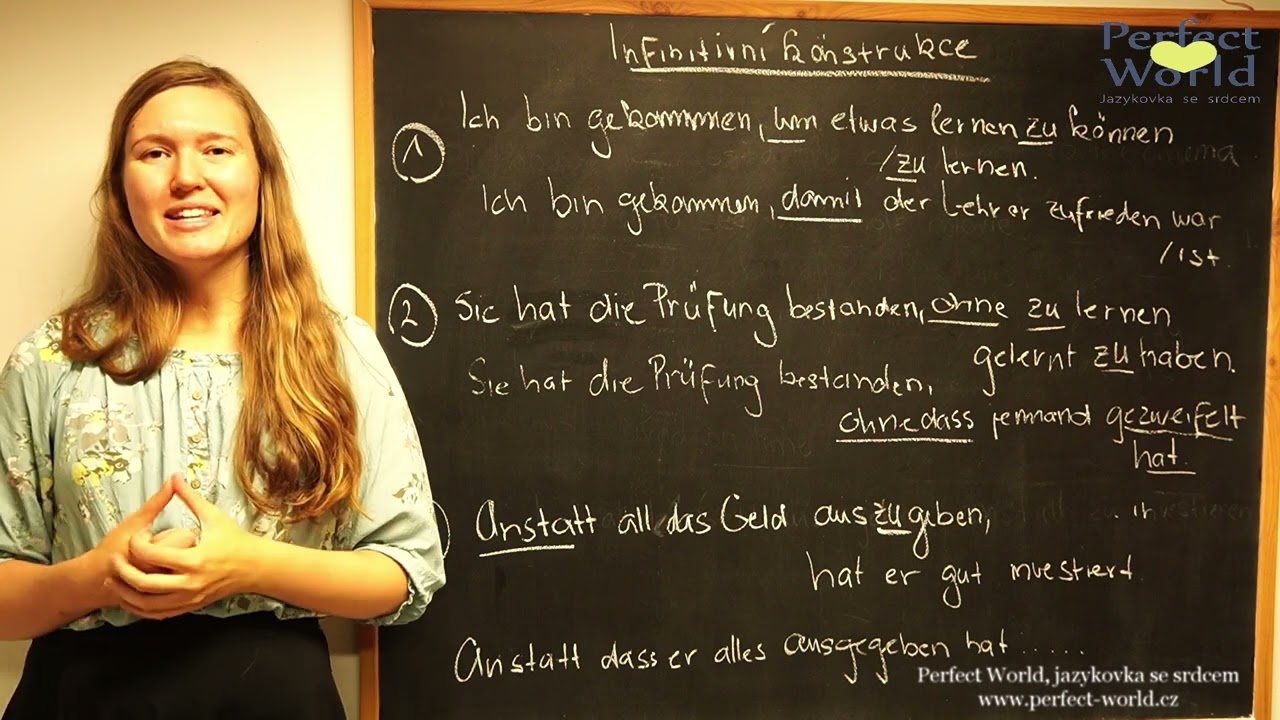 Infinitivní konstrukce
Perfect
World
Jazykovka se srdcem
1 Ich bin gekommen, um etwas lernen zu können
/zu lernen.
Ich bin gekommen, damit der Lehrer zufrieden war
/ist.
2 Sie hat die Prüfung bestanden, ohne zu lernen
gelernt zu haben.
Sie hat die Prüfung bestanden,
ohne dass jemand gezweifelt
hat.
) Anstatt all das Geld auszugeben,
hat er gut investiert
Anstatt dass er alles ausgegeben hat .....
Perfect World, jazykovka se srdcem
www.perfect-world.cz